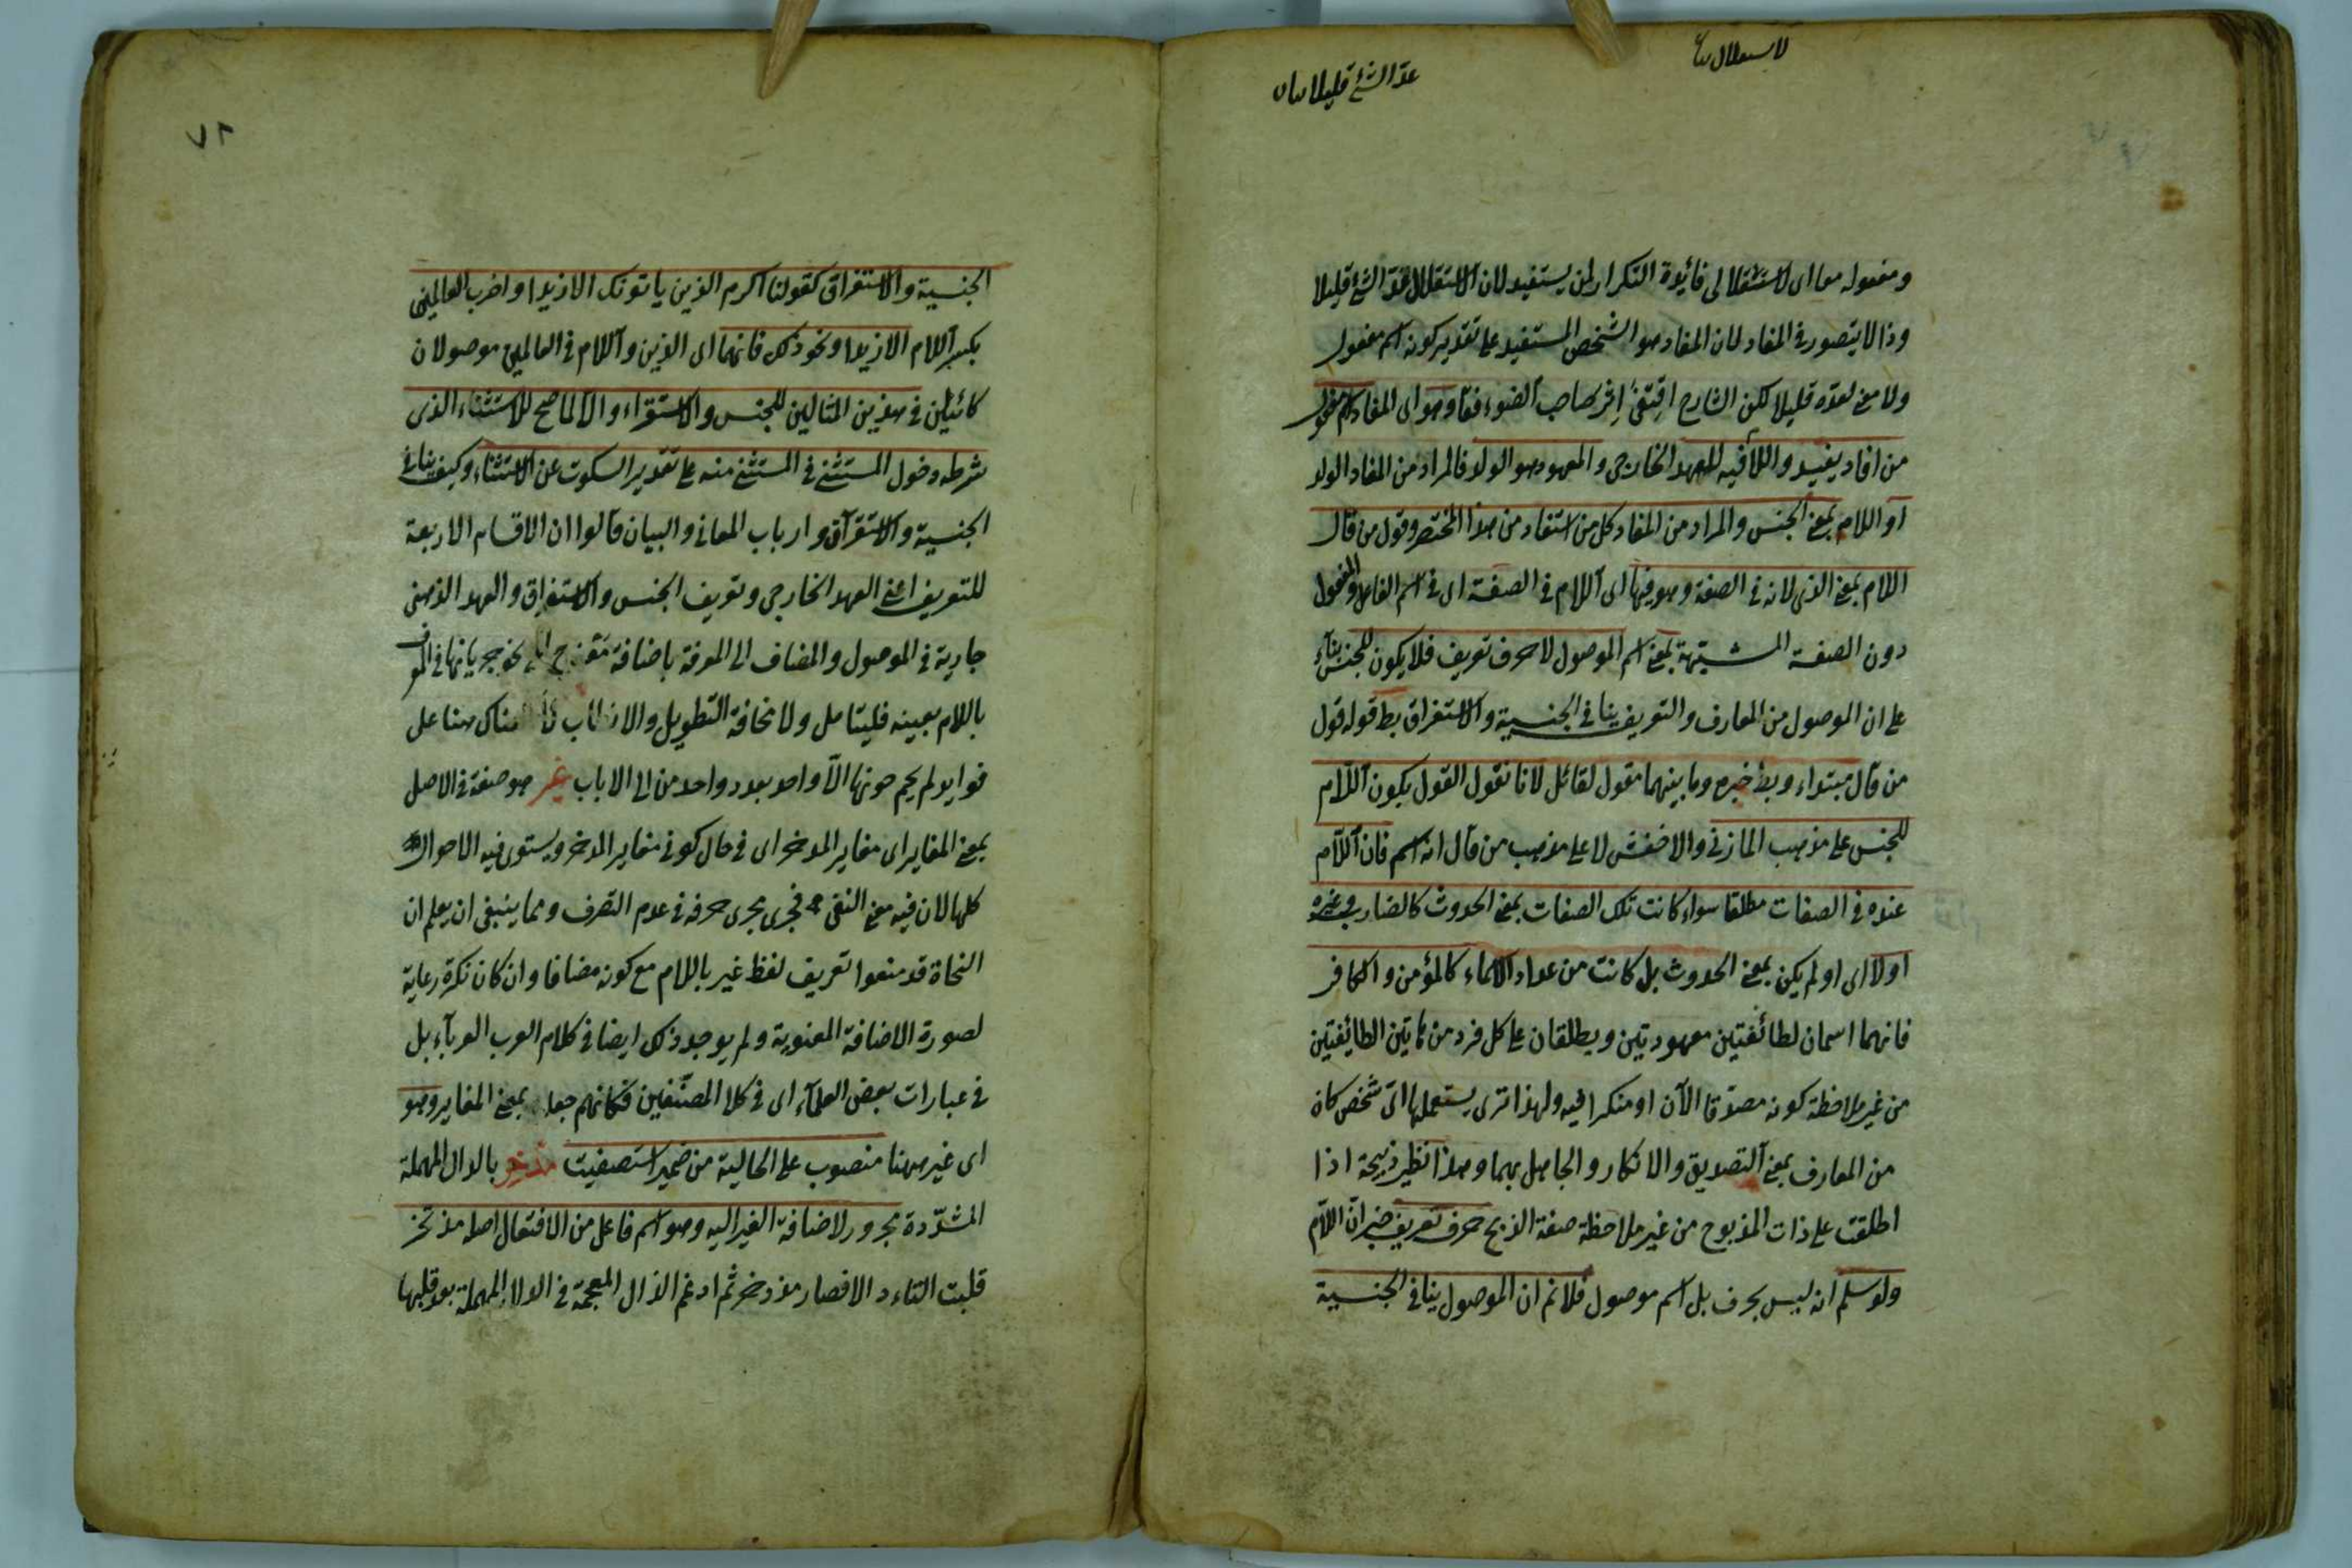 لاستقلال بيان
عدّ الشئ قليلا بيان
ومفعوله معا اى لاستقلالى فائدة التكرار لمن يستفيد لان الاستقلال عدّ الشئ قليلا
وذا لا يتصور فى المفاد لان المفاد هو الشخص المستفيد على تقدير كونه اسم مفعول
ولا معنى لعده قليلا لكن الشارح اقتفى اثر صاحب الضوء فقال وهو اى المفاد اسم مفعول
من افاد يفيد واللام فيه للعهد الخارجى والمعهود هو الولد فالمراد من المفاد الولد
او اللام بمعنى الجنس والمراد من المفاد كل من استفاد من هذا المختصر وقول من قال
اللام بمعنى الذى لانه فى الصفة وهو فيها اى اللام فى الصفة اى فى اسم الفاعل والمفعول
دون الصفة المشبهة بمعنى اسم الموصول لا حرف تعريف فلا يكون للجنس بناء
على ان الموصول من المعارف والتعريف ينافى الجنسية والاستغراق بط قوله قول
من قال مبتداء وبط خبره وما بينهما مقول لقائل لانا نقول القول بكون اللام
للجنس على مذهب المازنى والاخفش لا على مذهب من قال انه اسم فان اللام
عنده فى الصفات مطلقا سواء كانت تلك الصفات بمعنى الحدوث كالضارب وغيره
اولا اى او لم يكن بمعنى الحدوث بل كانت من عداد الاسماء كالمؤمن والكافر
فانهما اسمان لطائفتين معهودتين ويطلقان على كل فرد من هاتين الطايفتين
من غير ملاحظة كونه مصدقا الآن او منكرا فيه ولهذا ترى يستعملها اىّ شخص كان
من المعارف بمعنى التصديق والانكار والجاهل بهما وهذا نظير ذبيحة اذا
اطلقت على ذات المذبوح من غير ملاحظة صفة الذبح حرف تعريف خبر انّ اللام
ولو سلم انه ليس بحرف بل اسم موصول فلا نم ان الموصول ينافى الجنسية
٧٨
الجنسية والاستغراق كقولنا اكرم الذين ياتونك الا زيدا واضرب العالمين
بكسر اللام الا زيدا ونحو ذلك فانهما اى الذين واللام فى العالمين موصولان
كائنين فى هذين المثالين للجنس والاستقراء والا لما صح للاستثناء الذى
شرطه دخول المستثنى فى المستثنى منه على تقدير السكوت عن الاستثناء وكيف ينافى
الجنسية والاستقرآق وارباب المعانى والبيان قالوا ان الاقسام الاربعة
للتعريف اعنى العهد الخارجى وتعريف الجنس والاستغراق والعهد الذهنى
جارية فى الموصول والمضاف الى المعرفة باضافة نحو جريانها فى المعرف
باللام بعينه فليتامل ولا مخافة التطويل والاطناب هناك هنا على
فوايد لم يحم حونها الّا واحد بعدد واحد من الى الاباب غير هو صفة فى الاصل
بمعنى المغاير اى مغاير المدخر اى فى حال كونى مغاير المدخر ويستوى فيه الاحوال
كلها لان فيه معنى النفى فجرى مجرى حرفه فى عدم التصرف ومما ينبغى ان يعلم ان
النحاة قد منعوا تعريف لفظ غير باللام مع كونه مضافا وان كان نكرة رعاية
لصورة الاضافة المعنوية ولم يوجد ذلك ايضا فى كلام العرب العرباء بل
فى عبارات بعض العلماء اى فى كلام المصنّفين فكانهم جعلوه بمعنى المغاير وهو
اى غير ههنا منصوب على الحالية من ضمير استصفيت مدخر بالدال المهملة
المشدّدة مجرور لاضافة الغير اليه وهو اسم فاعل من الافتعال اصله مذتخر
قلبت التاء د الا فصار مذدخر ثم ادغم الذال المعجمة فى الدال المهملة بعد قلبها